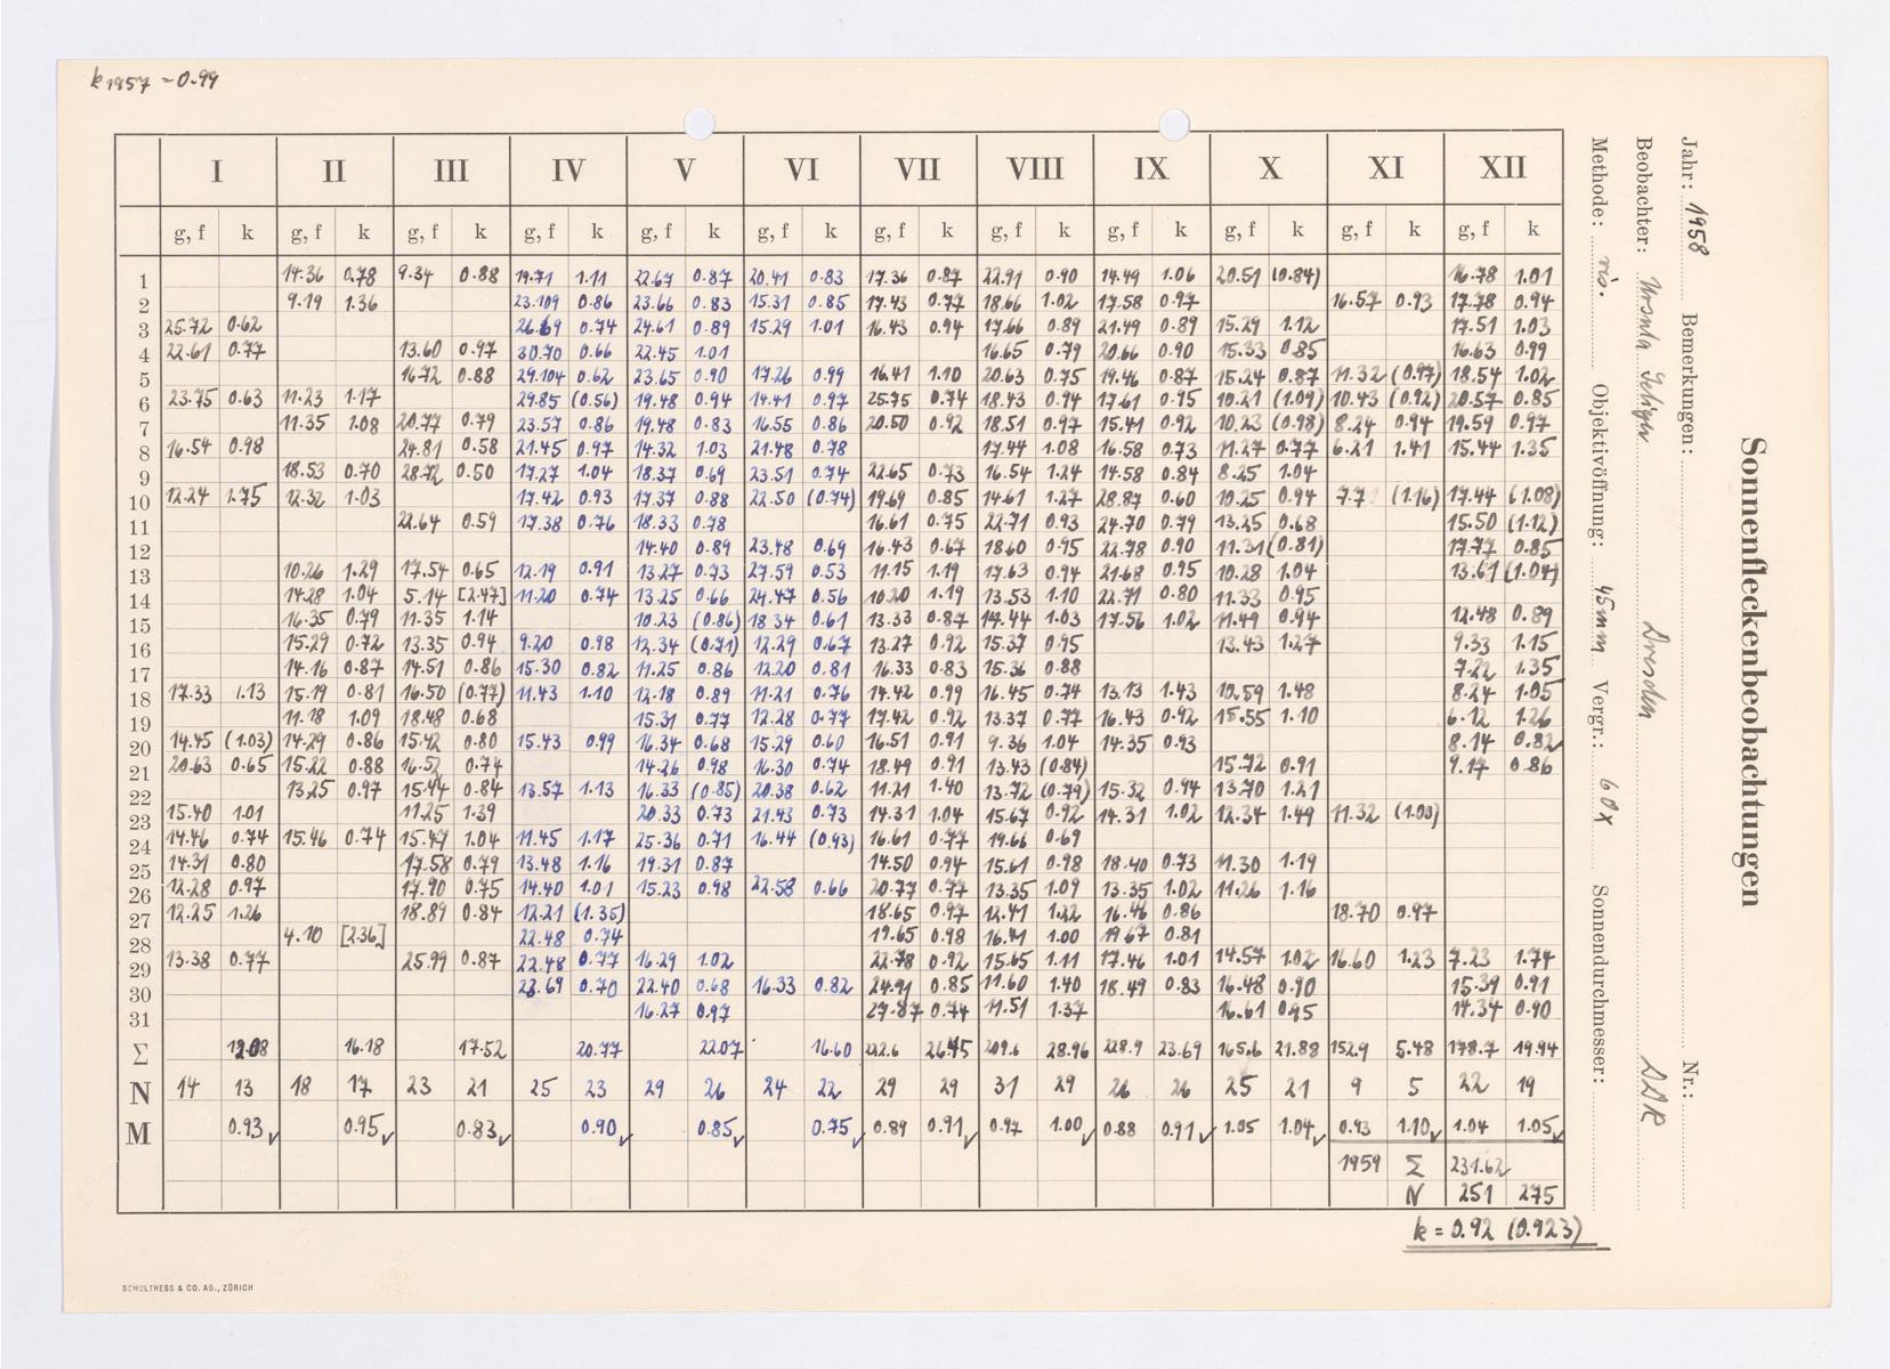 k1957 = 0.99
I II III IV V VI VII VIII IX X XI XII
g, f k g, f k g, f k g, f k g, f k g, f k g, f k g, f k g, f k g, f k g, f k g, f k
1 14.36 0.78 9.34 0.88 19.71 1.11 22.67 0.87 20.41 0.83 17.36 0.87 22.91 0.90 14.49 1.06 20.51 (0.84) 16.78 1.01
2 9.19 1.36 23.109 0.86 23.66 0.83 15.31 0.85 17.43 0.77 18.66 1.02 17.58 0.97 16.57 0.93 17.78 0.94
3 25.72 0.62 26.69 0.74 24.61 0.89 15.29 1.01 16.43 0.94 17.66 0.89 21.49 0.89 15.29 1.12 17.51 1.03
4 22.61 0.77 13.60 0.97 30.70 0.66 22.45 1.01 16.65 0.79 20.66 0.90 15.33 0.85 16.63 0.99
5 16.72 0.88 29.104 0.62 23.65 0.90 17.26 0.99 16.41 1.10 20.63 0.75 19.46 0.87 15.24 0.87 11.32 (0.97) 18.54 1.02
6 23.75 0.63 11.23 1.17 29.85 (0.56) 19.48 0.94 14.41 0.97 25.75 0.74 18.43 0.94 17.61 0.75 10.21 (1.09) 10.43 (0.92) 20.57 0.85
7 11.35 1.08 20.77 0.79 23.57 0.86 19.48 0.83 16.55 0.86 20.50 0.92 18.51 0.97 15.41 0.92 10.23 (0.98) 8.24 0.94 19.59 0.97
8 16.54 0.98 24.81 0.58 21.45 0.97 14.32 1.03 21.48 0.78 17.44 1.08 16.58 0.73 11.27 0.77 6.21 1.41 15.44 1.35
9 18.53 0.70 28.72 0.50 17.27 1.04 18.37 0.69 23.51 0.74 22.65 0.73 16.54 1.24 14.58 0.84 8.25 1.04
10 12.24 1.75 12.32 1.03 17.42 0.93 17.37 0.88 22.50 (0.74) 19.69 0.85 14.61 1.27 28.87 0.60 10.25 0.94 7.7 (1.16) 17.44 (1.08)
11 22.64 0.59 17.38 0.76 18.33 0.78 16.61 0.75 22.71 0.93 24.70 0.79 13.25 0.68 15.50 (1.12)
12 14.40 0.89 23.48 0.69 16.43 0.67 18.60 0.95 22.78 0.90 11.31 (0.81) 17.77 0.85
13 10.26 1.29 17.54 0.65 12.19 0.91 13.27 0.73 27.59 0.53 11.15 1.19 17.63 0.94 21.68 0.95 10.28 1.04 13.61 (1.04)
14 14.28 1.04 5.14 [2.47] 11.20 0.74 13.25 0.66 24.47 0.56 10.20 1.19 13.53 1.10 22.71 0.80 11.33 0.95
15 16.35 0.79 11.35 1.14 10.23 (0.86) 18.34 0.61 13.33 0.87 14.44 1.03 17.56 1.02 11.49 0.94 12.48 0.89
16 15.29 0.72 13.35 0.94 9.20 0.98 12.34 (0.71) 12.29 0.67 13.27 0.92 15.37 0.95 13.43 1.27 9.33 1.15
17 14.16 0.87 14.51 0.86 15.30 0.82 11.25 0.86 12.20 0.81 16.33 0.83 15.36 0.88 7.22 1.35
18 17.33 1.13 15.19 0.81 16.50 (0.77) 11.43 1.10 12.18 0.89 11.21 0.76 14.42 0.99 16.45 0.74 13.13 1.43 10.59 1.48 8.24 1.05
19 11.18 1.09 18.48 0.68 15.31 0.77 12.28 0.77 17.42 0.92 13.37 0.77 16.43 0.92 15.55 1.10 6.12 1.26
20 14.45 (1.03) 14.29 0.86 15.42 0.80 15.43 0.99 16.34 0.68 15.29 0.60 16.51 0.91 9.36 1.04 14.35 0.93 8.14 0.82
21 20.63 0.65 15.22 0.88 16.52 0.74 14.26 0.98 16.30 0.74 18.49 0.91 13.43 (0.84) 15.72 0.91 9.17 0.86
22 13.25 0.97 15.44 0.84 13.57 1.13 16.33 (0.85) 20.38 0.62 11.21 1.40 13.72 (0.79) 15.32 0.94 13.70 1.21
23 15.40 1.01 11.25 1.39 20.33 0.73 21.43 0.73 14.31 1.04 15.67 0.92 14.31 1.02 12.34 1.49 11.32 (1.03)
24 14.46 0.74 15.46 0.74 15.47 1.04 11.45 1.17 25.36 0.71 16.44 (0.93) 16.61 0.77 19.66 0.69
25 14.31 0.80 17.58 0.79 13.48 1.16 19.31 0.87 14.50 0.94 15.61 0.98 18.40 0.73 11.30 1.19
26 12.28 0.97 17.90 0.75 14.40 1.01 15.23 0.98 22.58 0.66 20.77 0.77 13.35 1.09 13.35 1.02 11.26 1.16
27 12.25 1.26 18.89 0.84 12.21 (1.35) 18.65 0.97 12.41 1.22 16.46 0.86 18.70 0.97
28 4.10 [2.36] 22.48 0.74 19.65 0.98 16.41 1.00 19.67 0.81
29 13.38 0.77 25.99 0.87 22.48 0.77 16.29 1.02 22.78 0.92 15.65 1.11 17.46 1.01 14.57 1.02 16.60 1.23 7.23 1.74
30 23.69 0.70 22.40 0.68 16.33 0.82 24.91 0.85 11.60 1.40 18.49 0.83 16.48 0.90 15.39 0.91
31 16.27 0.97 27.87 0.74 11.51 1.37 16.61 0.95 14.34 0.90
Σ 12.08 16.18 17.52 20.77 22.07 16.60 222.6 26.45 209.6 28.96 228.9 23.69 165.6 21.88 152.9 5.48 178.7 19.94
N 14 13 18 17 23 21 25 23 29 26 24 22 29 29 31 29 26 26 25 21 9 5 22 19
M 0.93 ✓ 0.95 ✓ 0.83 ✓ 0.90 ✓ 0.85 ✓ 0.75 ✓ 0.89 0.91 ✓ 0.97 1.00 ✓ 0.88 0.91 ✓ 1.05 1.04 ✓ 0.93 1.10 ✓ 1.04 1.05 ✓
1959 Σ 231.62
N 251 275
k = 0.92 (0.923)
SCHULTHESS & CO. AG., ZÜRICH
Sonnenfleckenbeobachtungen
Jahr: 1958 Bemerkungen: Nr.:
Beobachter: Ursula Seliger Dresden DDR
Methode: vis. Objektivöffnung: 45mm Vergr.: 60x Sonnendurchmesser: